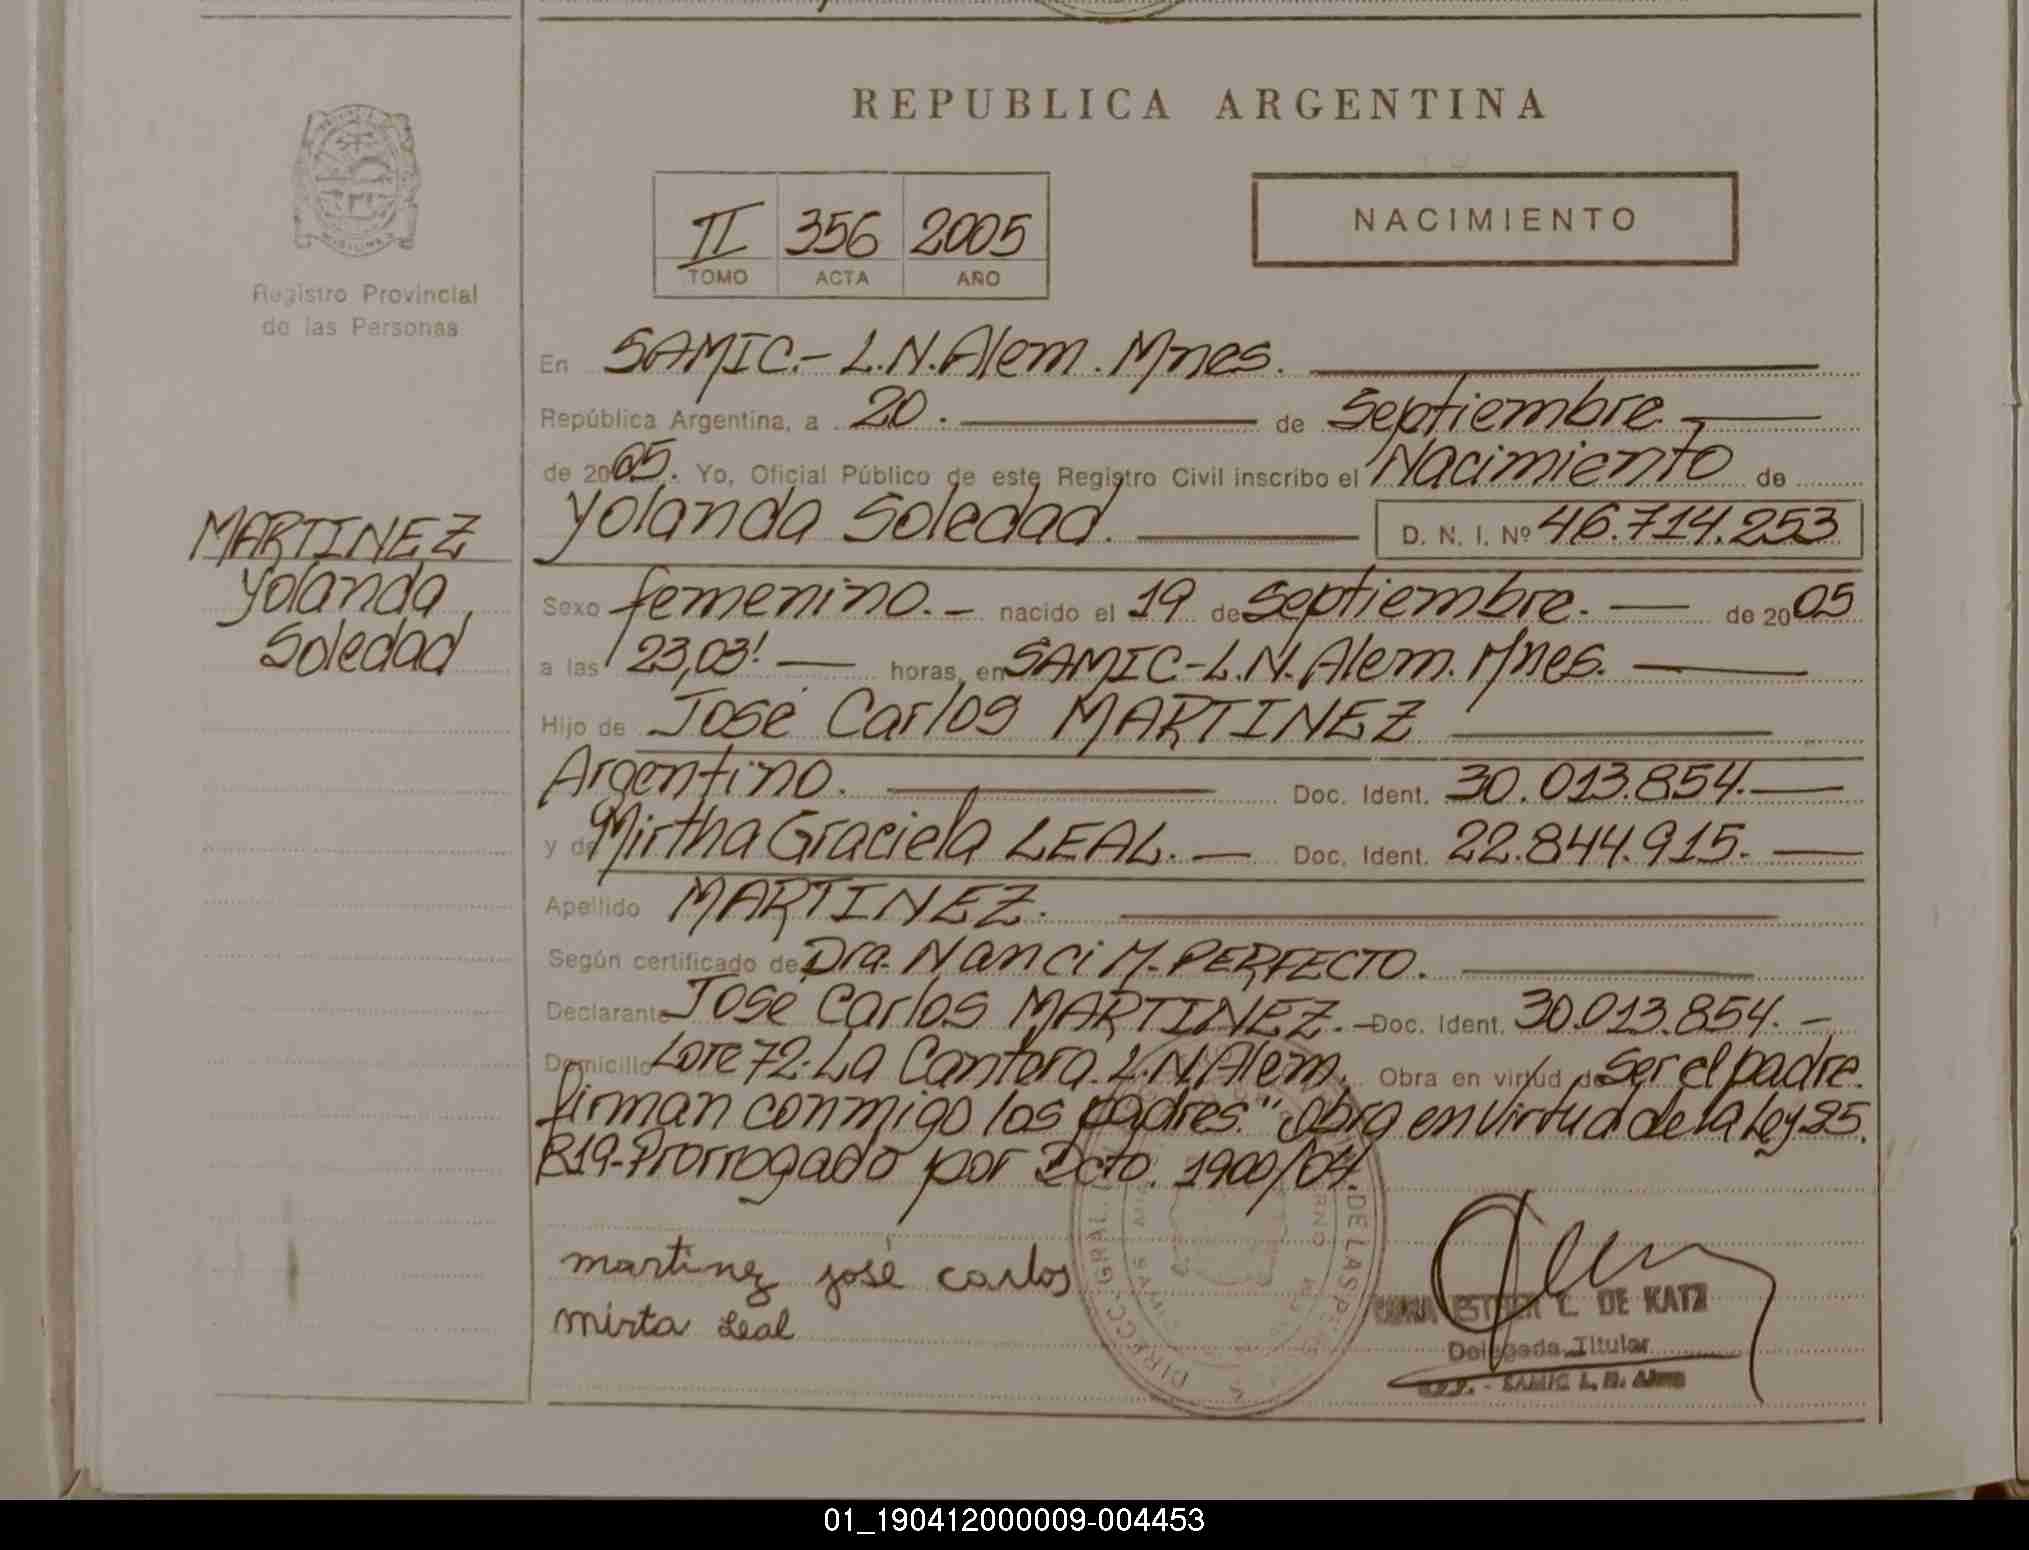 REPUBLICA ARGENTINA
II 356 2005
TOMO ACTA AÑO
NACIMIENTO
Registro Provincial
de las Personas
MARTINEZ
Yolanda
Soledad
En SAMIC.- L.N.Alem. Mnes.
República Argentina, a 20. de Septiembre.
de 2005. Yo, Oficial Público de este Registro Civil inscribo el Nacimiento de
Yolanda Soledad. D. N. I. Nº 46.714.253
Sexo femenino.- nacido el 19 de Septiembre. de 2005
a las 23,03! horas, en SAMIC-L.N.Alem. Mnes.
Hijo de José Carlos MARTINEZ
Argentino. Doc. Ident. 30.013.854.
y de Mirtha Graciela LEAL. Doc. Ident. 22.844.915.
Apellido MARTINEZ.
Según certificado de Dra. Nanci M. PERFECTO.
Declarante José Carlos MARTINEZ.- Doc. Ident. 30.013.854.-
Domicilio Lote 72. La Cantora. L.N.Alem. Obra en virtud de Ser el padre.
firman conmigo los padres." Obra en virtud de la Ley 25.
819-Prorrogado por Dcto. 1900/04.
martinez josé carlos
mirta Leal
DE KATZ
Delegada Titular
SAMIC L. N. Alem
01_190412000009-004453